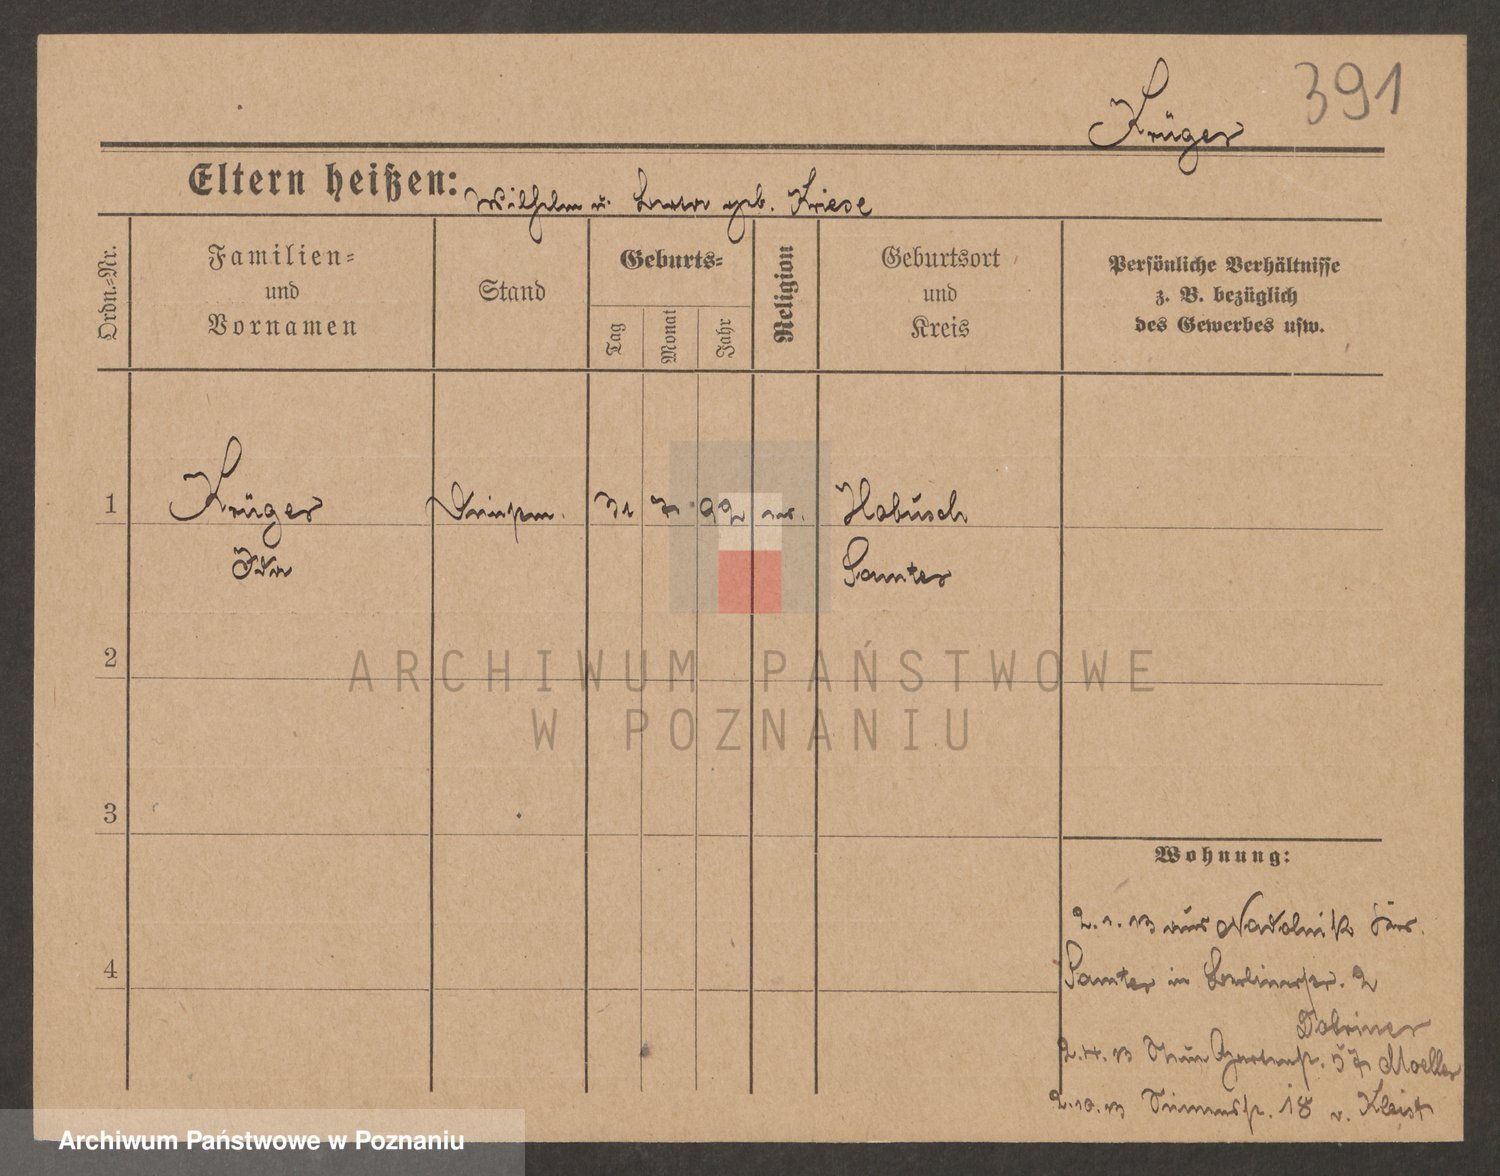 391
Krüger
Eltern heißen: Wilhelm u. geb. Kriese
Ordn.-Nr.
Familien=
und
Vornamen
Stand
Geburts=
Tag
Monat
Jahr
Religion
Geburtsort
und
Kreis
Persönliche Verhältnisse
z. B. bezüglich
des Gewerbes usw.
1
Krüger
Ida
92
Samter
2
ARCHIWUM PAŃSTWOWE
W POZNANIU
3
4
Wohnung:
2.1.13 aus Nadolnik
Samter in Berlinerstr. 2
Dobriner
2.4.13 Gartenstr. Moeller
2.10.13 18 v. Kleist
Archiwum Państwowe w Poznaniu